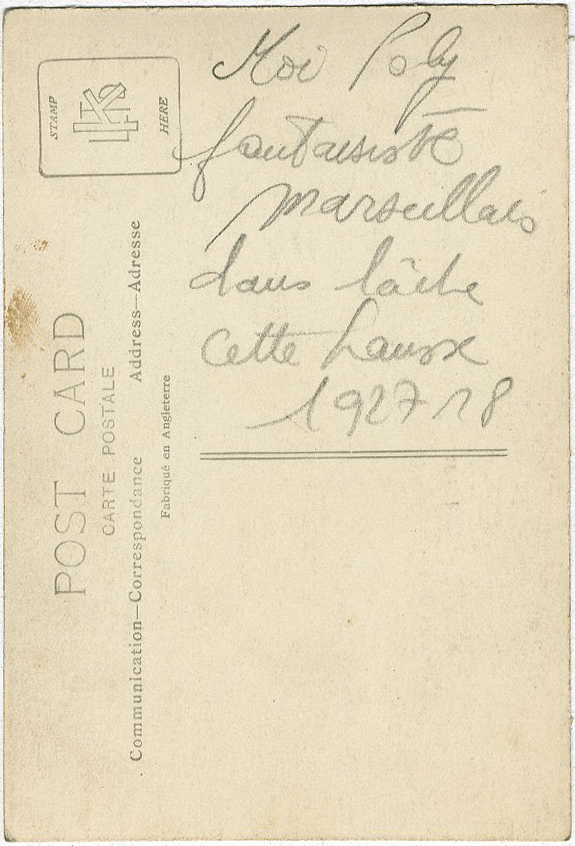 Moi Poly
fantaisiste
marseillais
dans
cette
1927 18
STAMP
HERE
POST CARD
CARTE POSTALE
Communication—Correspondance Address—Adresse
Fabriqué en Angleterre